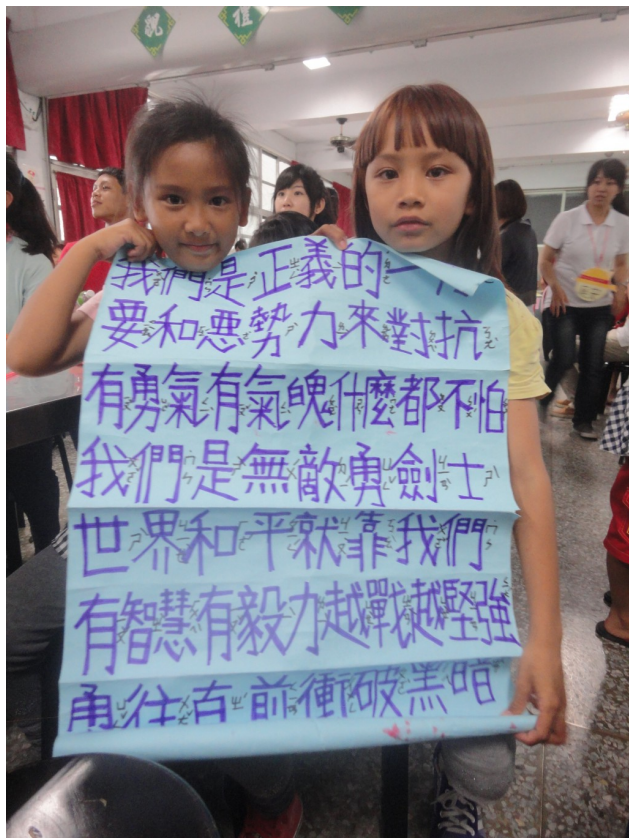 我們是正義的一
要和悪勢力來對抗
有勇氣有氣魄什麼都不怕
我們是無敵勇劍士
世界和平就靠我們
有智慧有毅力越戰越堅強
勇往直前衝破黑暗